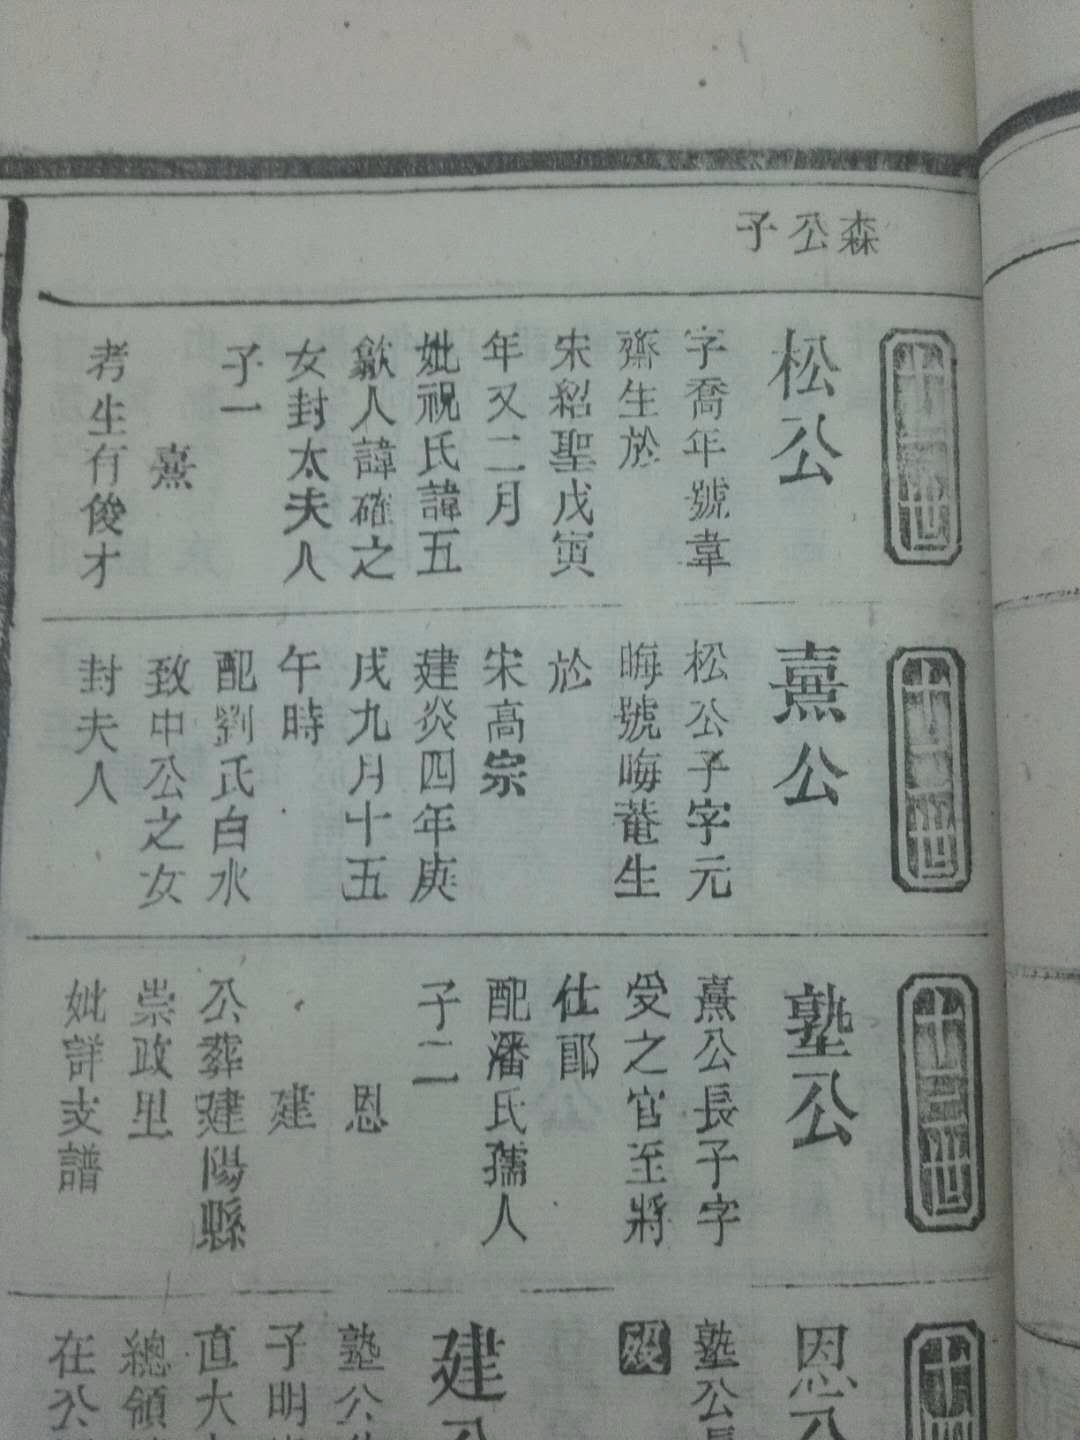 森公子
松公
字喬年號韋
齋生於
宋紹聖戊寅
年又二月
妣祝氏諱五
歙人諱確之
女封太夫人
子一
熹
考生有俊才
熹公
松公子字元
晦號晦菴生
於
宋高宗
建炎四年庚
戌九月十五
午時
配劉氏白水
致中公之女
封夫人
塾公
熹公長子字
受之官至將
仕郎
配潘氏孺人
子二
恩
建
公葬建陽縣
崇政里
妣詳支譜
恩
塾公長
歿
建
塾公
子明
直大
總領
在公